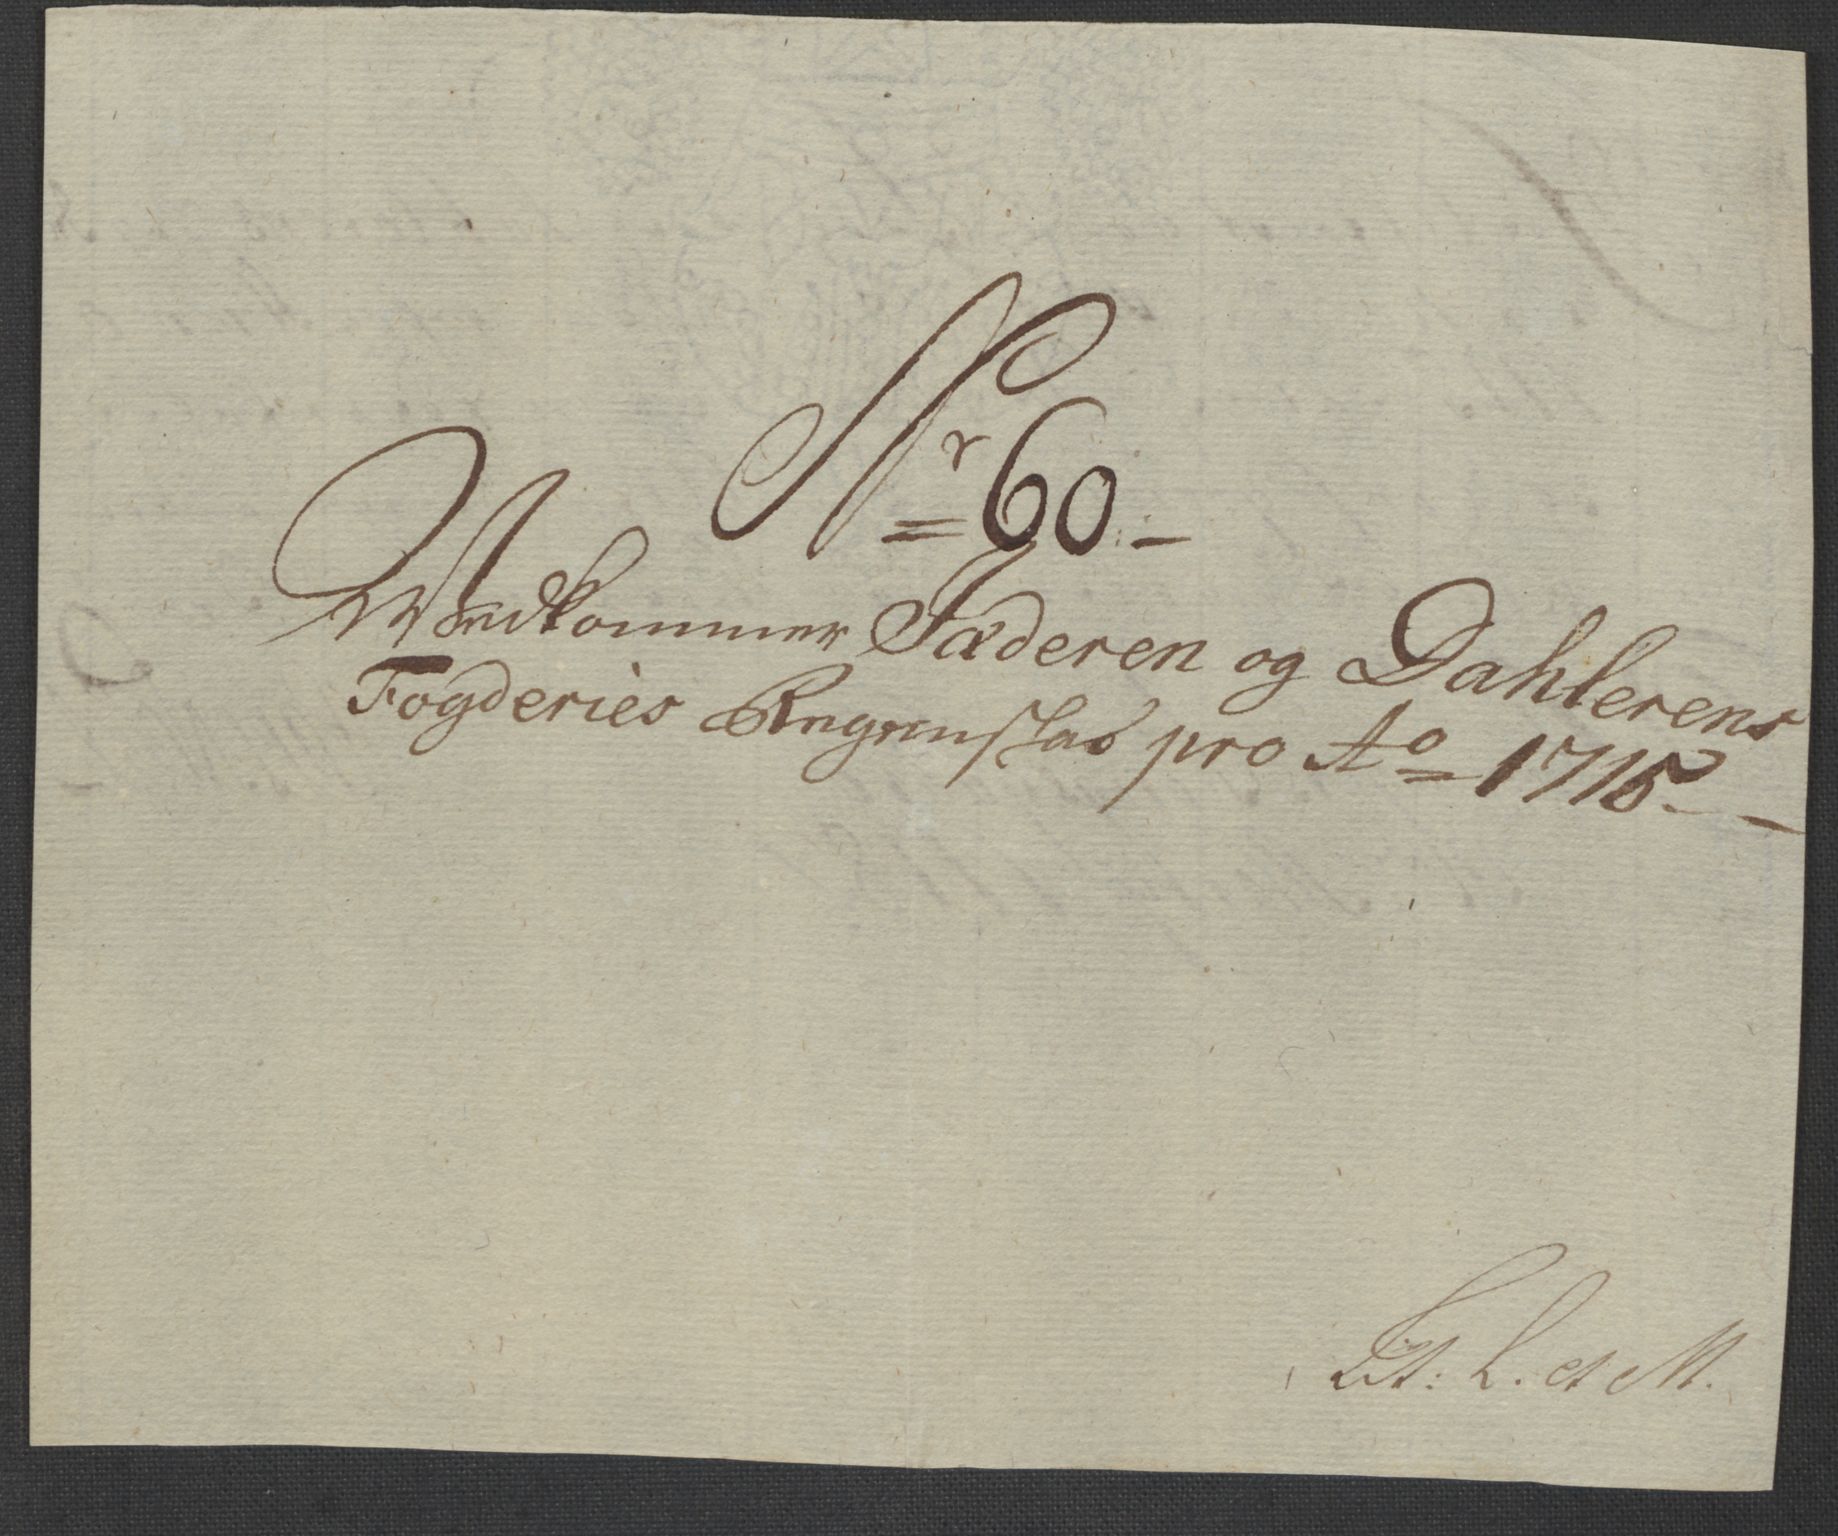 Nr 60.-
Wedkommer Jæderen og Dahlerens
Fogderies Regenskab pro Ao 1715.-
Lit: L. et M.